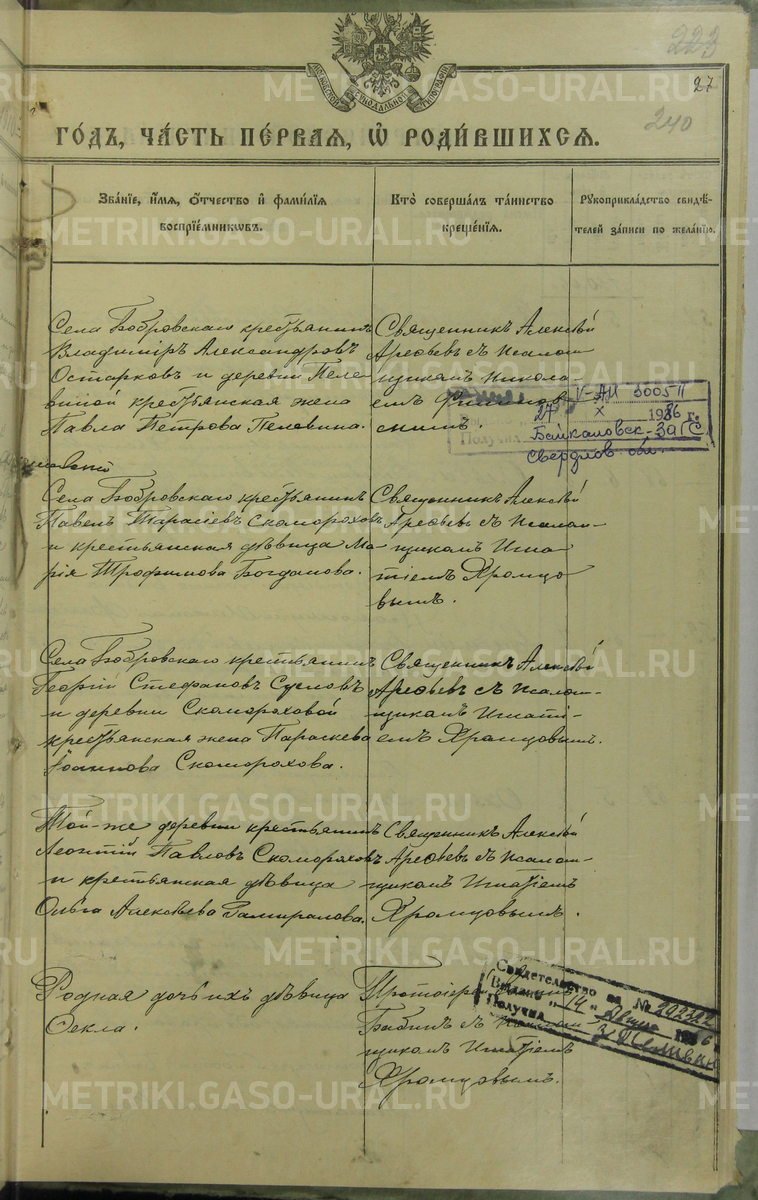 223
27
240
ГОДЪ, ЧАСТЬ ПЕРВАЯ, Ѡ РОДИВШИХСЯ.
Званіе, имя, отчество и фамилія
воспріемниковъ.
Кто совершалъ таинство
крещенія.
Рукоприкладство свидѣ-
телей записи по желанію.
Села Бобровскаго крестьянинъ
Владиміръ Александровъ
Остарковъ и деревни Пеле-
виной крестьянская жена
Павла Петрова Пелевина.
Священникъ Алексѣй
Арефьевъ съ псалом-
щикомъ Никола-
емъ
скимъ.
V-АИ 300511
27 X 1986 г.
Байкаловск. ЗАГС
Свердлов. обл.
Села Бобровскаго крестьянинъ
Павелъ Тарасіевъ Скомороховъ
и крестьянская дѣвица Ма-
рія Трофимова Богданова.
Священникъ Алексѣй
Арефьевъ съ псалом-
щикомъ Игна-
тіемъ Храмцо-
вымъ.
Села Бобровскаго крестьянинъ
Георгій Стефановъ Сусловъ
и деревни Скомороховой
крестьянская жена Параскева
Іоаннова Скоморохова.
Священникъ Алексѣй
Арефьевъ съ псалом-
щикомъ Игнаті-
емъ Храмцовымъ.
Той-же деревни крестьянинъ
Леонтій Павловъ Скомороховъ
и крестьянская дѣвица
Ольга Алексѣева
Священникъ Алексѣй
Арефьевъ съ псалом-
щикомъ Игнатіемъ
Храмцовымъ.
Родная дочь ихъ дѣвица
Фекла.
Протоіерей
Бабинъ съ псалом-
щикомъ Игнатіемъ
Храмцовымъ.
Свидетельство за №
Выдано "14"
Получил
METRIKI.GASO-URAL.RU